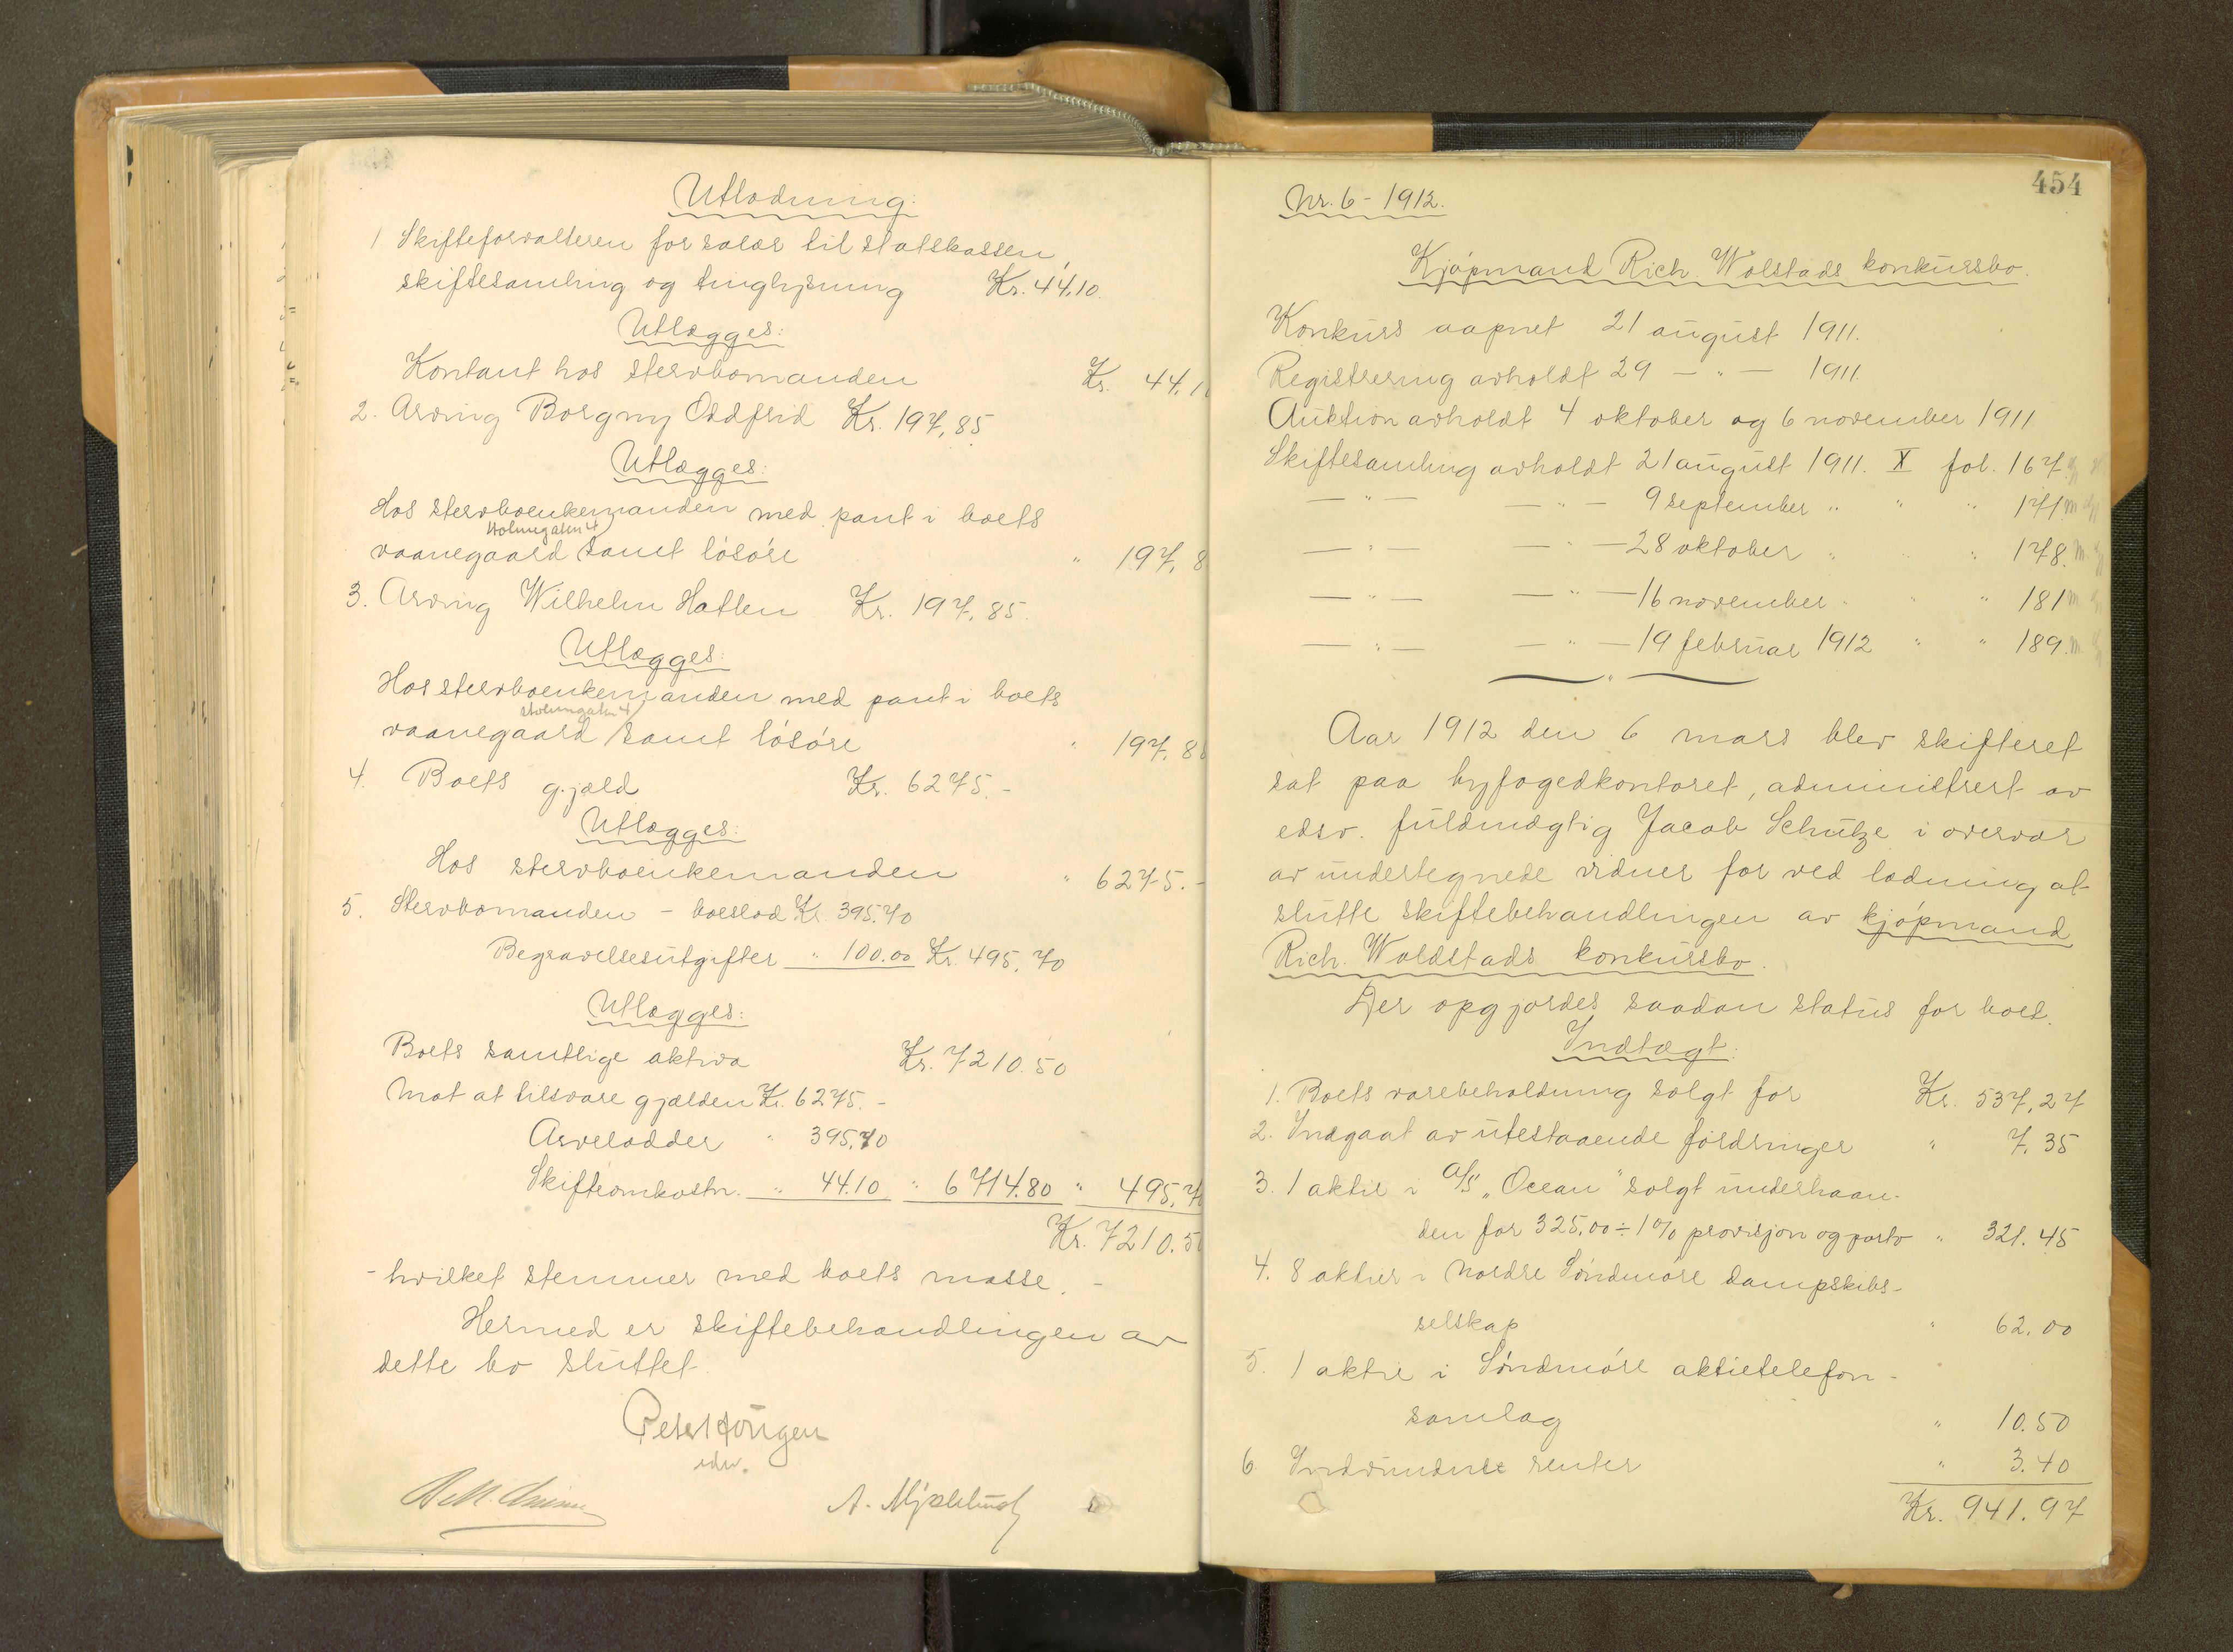 Utlodning:
1 Skifteforvalteren for salær til statskassen,
skiftesamling og tinglysning Kr. 44.10.
Utlægges:
Kontant hos stervbomanden Kr. 44.1
2. Arving Borgny Oddfrid Kr. 197,85
Utlægges:
Hos stervboenkemanden med pant i boets
Holmegaten 4
vaanegaard samt løsøre " 197,8
3. Arving Wilhelm Hatlen Kr. 197,85.
Utlægges:
Hos stervboenkemanden med pant i boets
vaanegaard samt løsøre " 197,85
4. Boets gjæld Kr. 6275.-
Utlægges:
Hos stervboenkemanden " 6275.-
5. Stervbomanden - boeslod Kr. 395.70
Begravelsesutgifter " 100.00 Kr. 495.70
Utlægges:
Boets samtlige aktiva Kr. 7210.50
mot at tilsvare gjælden Kr. 6275.-
Arvelodder " 395.70
Skifteomkostn. " 44.10 " 6714.80 " 495.7
Kr. 7210.5
- hvilket stemmer med boets masse. -
Hermed er skiftebehandlingen av
dette bo sluttet.
edv.
454
Nr. 6 - 1912.
Kjøpmand Rich. Wolstads konkursbo.
Konkurs aapnet 21 august 1911.
Registrering avholdt 29 — " — 1911.
Auktion avholdt 4 oktober og 6 november 1911
Skiftesamling avholdt 21 august 1911. X fol. 167
— " — — " — 9 september " " " 171
— " — — " — 28 oktober " " 178.
— " — — " — 16 november " " 181
— " — — " — 19 februar 1912 " " 189.
Aar 1912 den 6 mars blev skifteret
sat paa byfogedkontoret, administrert av
edsv. fuldmægtig Jacob Schulze i overvær
av undertegnede vidner for ved lodning at
slutte skiftebehandlingen av kjøpmand
Rich. Woldstads konkursbo.
Der opgjordes saadan status for boet.
Indtægt:
1. Boets varebeholdning solgt for Kr. 537,27
2. Indgaat av utestaaende fordringer " 7.35
3. 1 aktie i A/S „Ocean" solgt underhaan-
den for 325.00 ÷ 1% provisjon og porto " 321.45
4. 8 aktier i Nordre Søndmøre Dampskibs-
selskap " 62.00
5. 1 aktie i Søndmøre aktietelefon-
samlag " 10.50
6 Indvundne renter " 3.40
Kr. 941.97